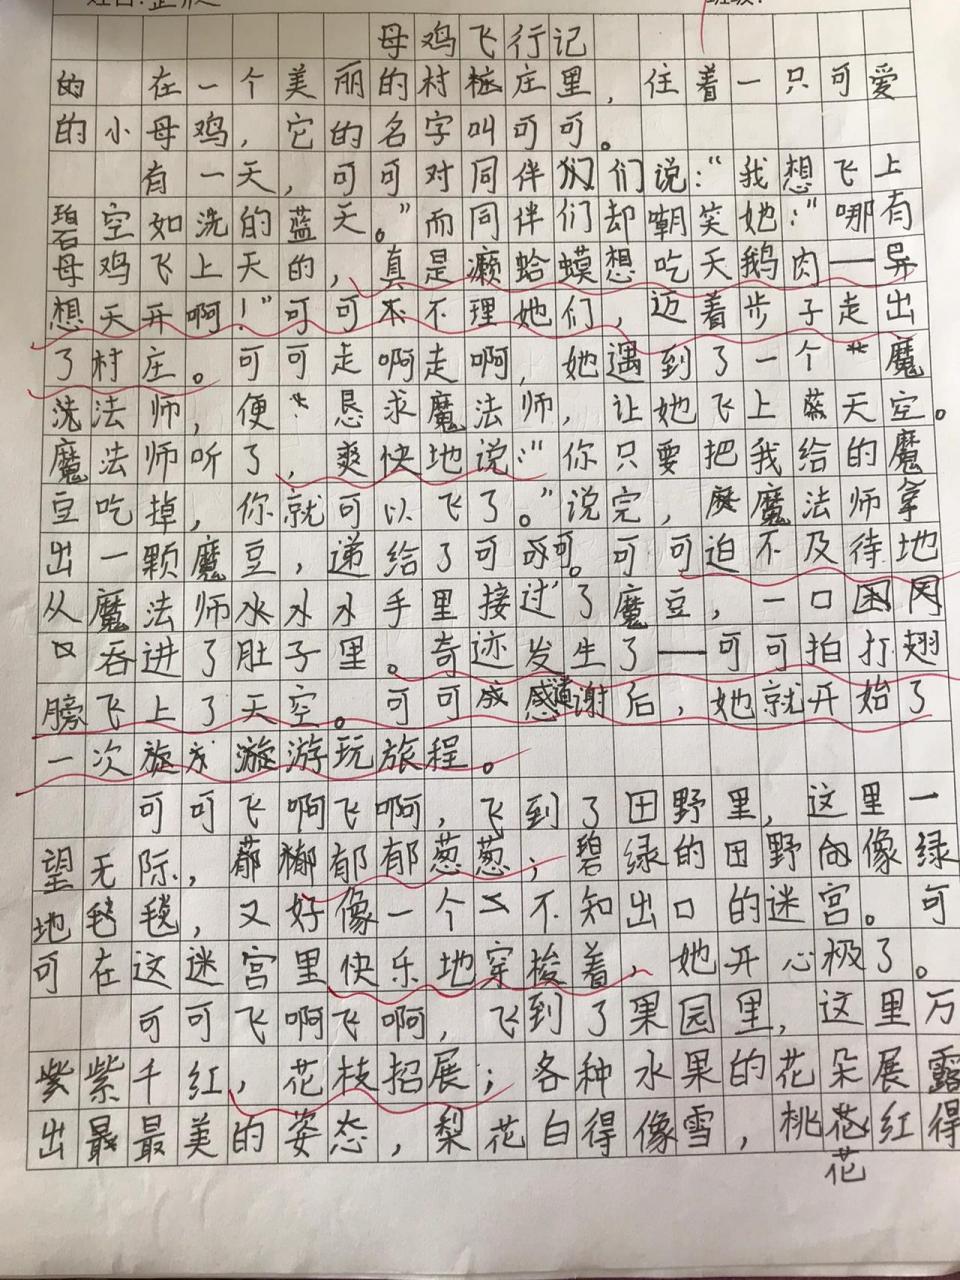 母鸡飞行记
的 在一个美丽的村庄里，住着一只可爱
的小母鸡，它的名字叫可可。
有一天，可可对同伴们说：“我想飞上
碧空如洗的蓝天。”而同伴们却嘲笑她：“哪有
母鸡飞上天的，真是濒蛤蟆想吃天鹅肉——异
想天开啊！”可可不理她们，迈着步子走出
了村庄。可可走啊走啊，她遇到了一个魔
法师，便恳求魔法师，让她飞上蓝天空。
魔法师听了，爽快地说：“你只要把我给的魔
豆吃掉，你就可以飞了。”说完，魔法师拿
出一颗魔豆，递给了可可。可可迫不及待地
从魔法师手里接过了魔豆，一口
吞进了肚子里。奇迹发生了——可可拍打翅
膀飞上了天空。可可感谢后，她就开始了
一次漩游玩旅程。
可可飞啊飞啊，飞到了田野里，这里一
望无际，郁郁葱葱；碧绿的田野像绿
地毯，又好像一个不知出口的迷宫。可
可在这迷宫里快乐地穿梭着，她开心极了。
可可飞啊飞啊，飞到了果园里，这里万
紫千红，花枝招展；各种水果的花朵展露
出最美的姿态，梨花白得像雪，桃花红得
花